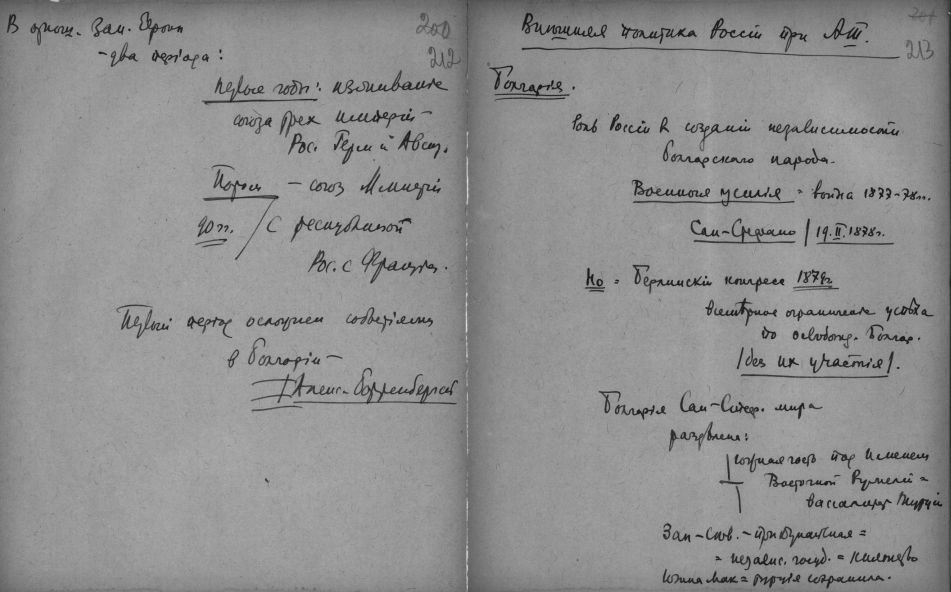 В отнош. Зап. Европы
200
212
- два периода:
Первые годы: изживание
союза трех империй -
Рос. Герм и Австр.
Потом - союз Империи
90 гг. / с республикой
Рос. с Францией.
Первый период осложнен событиями
в Болгарии -
Алекс. Баттенбергский
Внешняя политика России при АIII.
201
213
Болгария.
Роль России в создании независимости
болгарского народа.
Военные усилия = война 1877-78 гг.
Сан-Стефано / 19.II.1878 г.
Но = Берлинский конгресс 1878 г.
всемерное ограничение успеха
по освобожд. Болгар.
/без их участия/.
Болгария Сан-Стеф. мира
разделена:
южная часть под именем
Восточной Румелии =
вассалитет Турции
Зап-сев. - придунайская =
= независ. госуд. = княжество
Южная Мак = Турция сохранила.